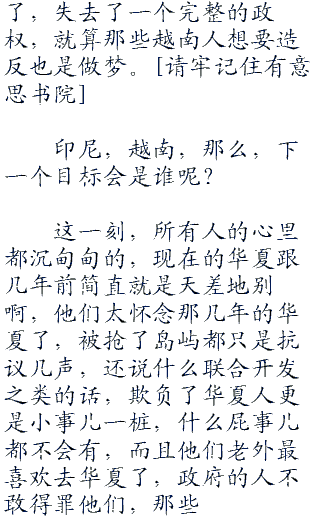 了，失去了一个完整的政
权，就算那些越南人想要造
反也是做梦。[请牢记住有意
思书院]
印尼，越南，那么，下
一个目标会是谁呢？
这一刻，所有人的心里
都沉甸甸的，现在的华夏跟
几年前简直就是天差地别
啊，他们太怀念那几年的华
夏了，被抢了岛屿都只是抗
议几声，还说什么联合开发
之类的话，欺负了华夏人更
是小事儿一桩，什么屁事儿
都不会有，而且他们老外最
喜欢去华夏了，政府的人不
敢得罪他们，那些